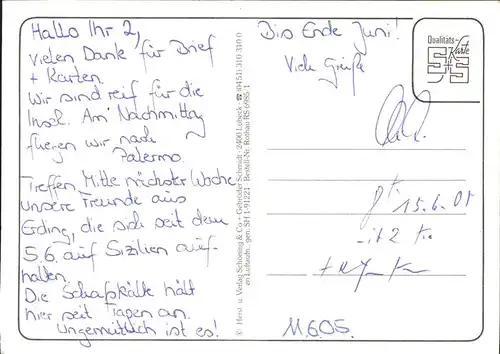 Hallo Ihr 2,
vielen Dank für Brief
+ Karten.
Wir sind reif für die
Insel. Am Nachmittag
fliegen wir nach
Palermo.
Treffen Mitte nächster Woche
unsere Freunde aus
Erding, die sich seit dem
5.6. auf Sizilien auf-
halten.
Die Schafskälte hält
hier seit Tagen an.
Ungemütlich ist es!
© Herst. u. Verlag Schöning & Co + Gebrüder Schmidt · 2400 Lübeck · ☎ (0451) 31 03 10
en Luftaufn. gen. SH 1-91221 · Bestell-Nr. Rotbau RS 6985/1
Bis Ende Juni!
Viele Grüße
Qualitäts-
Karte
15.6.05
11.6.05.